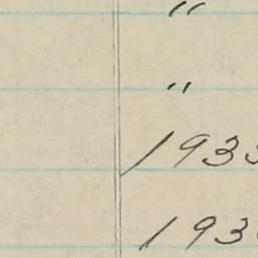 "
"
1933
193